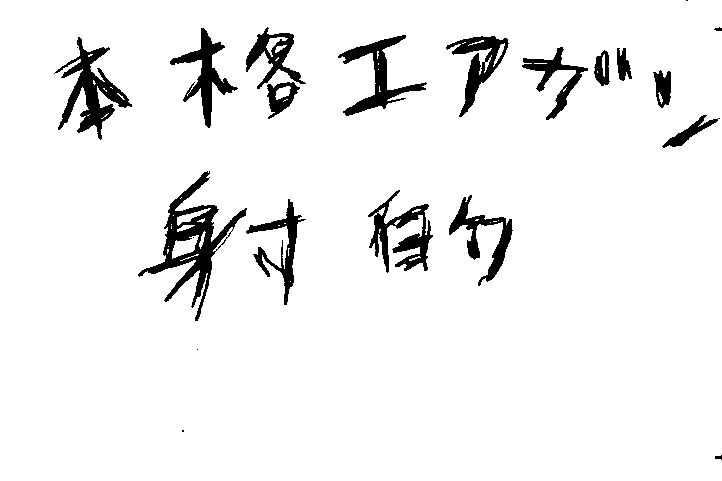 本格エアガン
射的